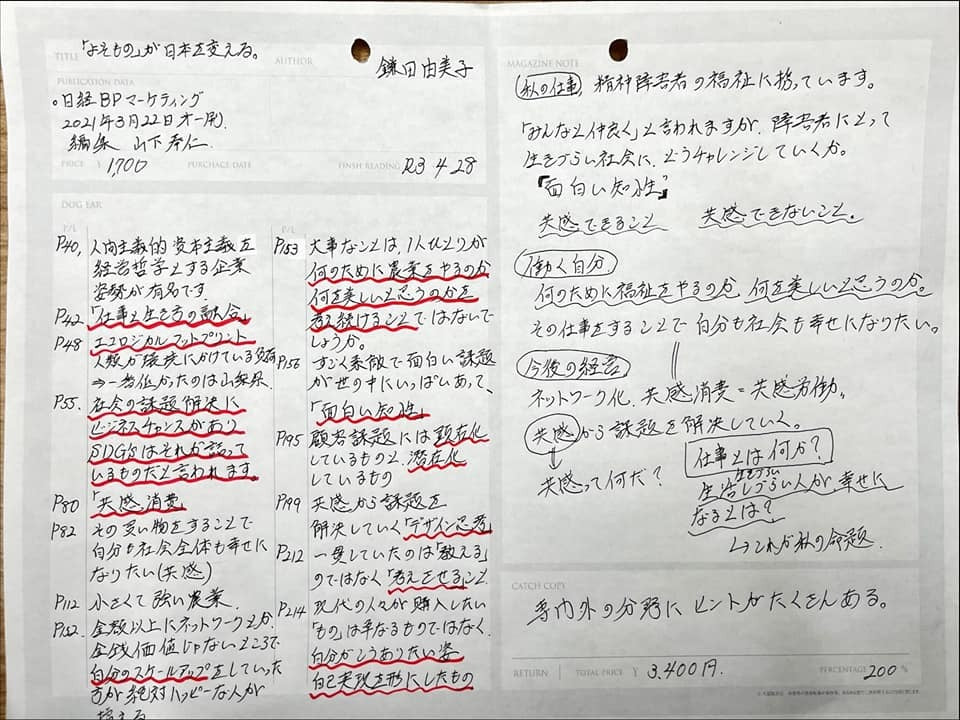 TITLE 「よそもの」が日本を変える。
AUTHOR 鎌田由美子
PUBLICATION DATA
。日経BPマーケティング
2021年3月22日オ一刷.
編集 山下奉仁.
PRICE ¥ 1,700 PURCHACE DATE FINSH READING R3 4 28
DOG EAR
P/L
P40, 人間主義的資本主義を
経営哲学とする企業
姿勢が有名です
P42 「仕事と生き方の融合」
P48 エコロジカルフットプリント
人類が環境にかけている負荷
⇒一番低かったのは山梨県.
P55. 社会の課題解決に
ビジネスチャンスがあり
SDGsはそれが詰って
いるものだと言われます.
P80 「共感,消費」
P82 その買い物をすることで
自分も社会全体も幸せに
なりたい(共感)
P112 小さくて強い農業.
P132 金額以上にネットワークとか,
金銭価値じゃないところで
自分のスケールアップをしていった
方が絶対ハッピーな人が
増える
P/L
P153 大事なことは,1人ひとりが
何のために農業をやるのか
何を美しいと思うのかを
考え続けることではないで
しょうか.
P156 すごく素敵で面白い課題
が世の中にいっぱいあって、
「面白い知性」
P195 顧客課題には顕在化
しているものと,潜在化
しているもの
P199 共感から課題を
解決していく「デザイン思考」
P212 一貫していたのは「教える」
のではなく「考えさせる」こと
P214 現代の人々が購入したい
「もの」は単なるものではなく,
自分がこうありたい姿
自己実現を形にしたもの
MAGAZINE NOTE
私の仕事, 精神障害者の福祉に携っています。
「みんなと仲良く」と言われますが,障害者にとって
生きづらい社会に,どうチャレンジしていくか。
「面白い知性」
共感できること 共感できないこと。
働く自分.
何のために福祉をやるのか,何を美しいと思うのか。
その仕事をすることで自分も社会も幸せになりたい。
今後の経営
ネットワーク化,共感消費=共感労働,
共感から課題を解決していく。
共感って何だ?
仕事とは何か?
生きづらい
生活しづらい人が,幸せに
なるとは?
↳これが私の命題.
CATCH COPY
専門外の分野にヒントがたくさんある。
RETURN TOTAL PRICE ¥ 3,400円. PERCENTAGE 200 %